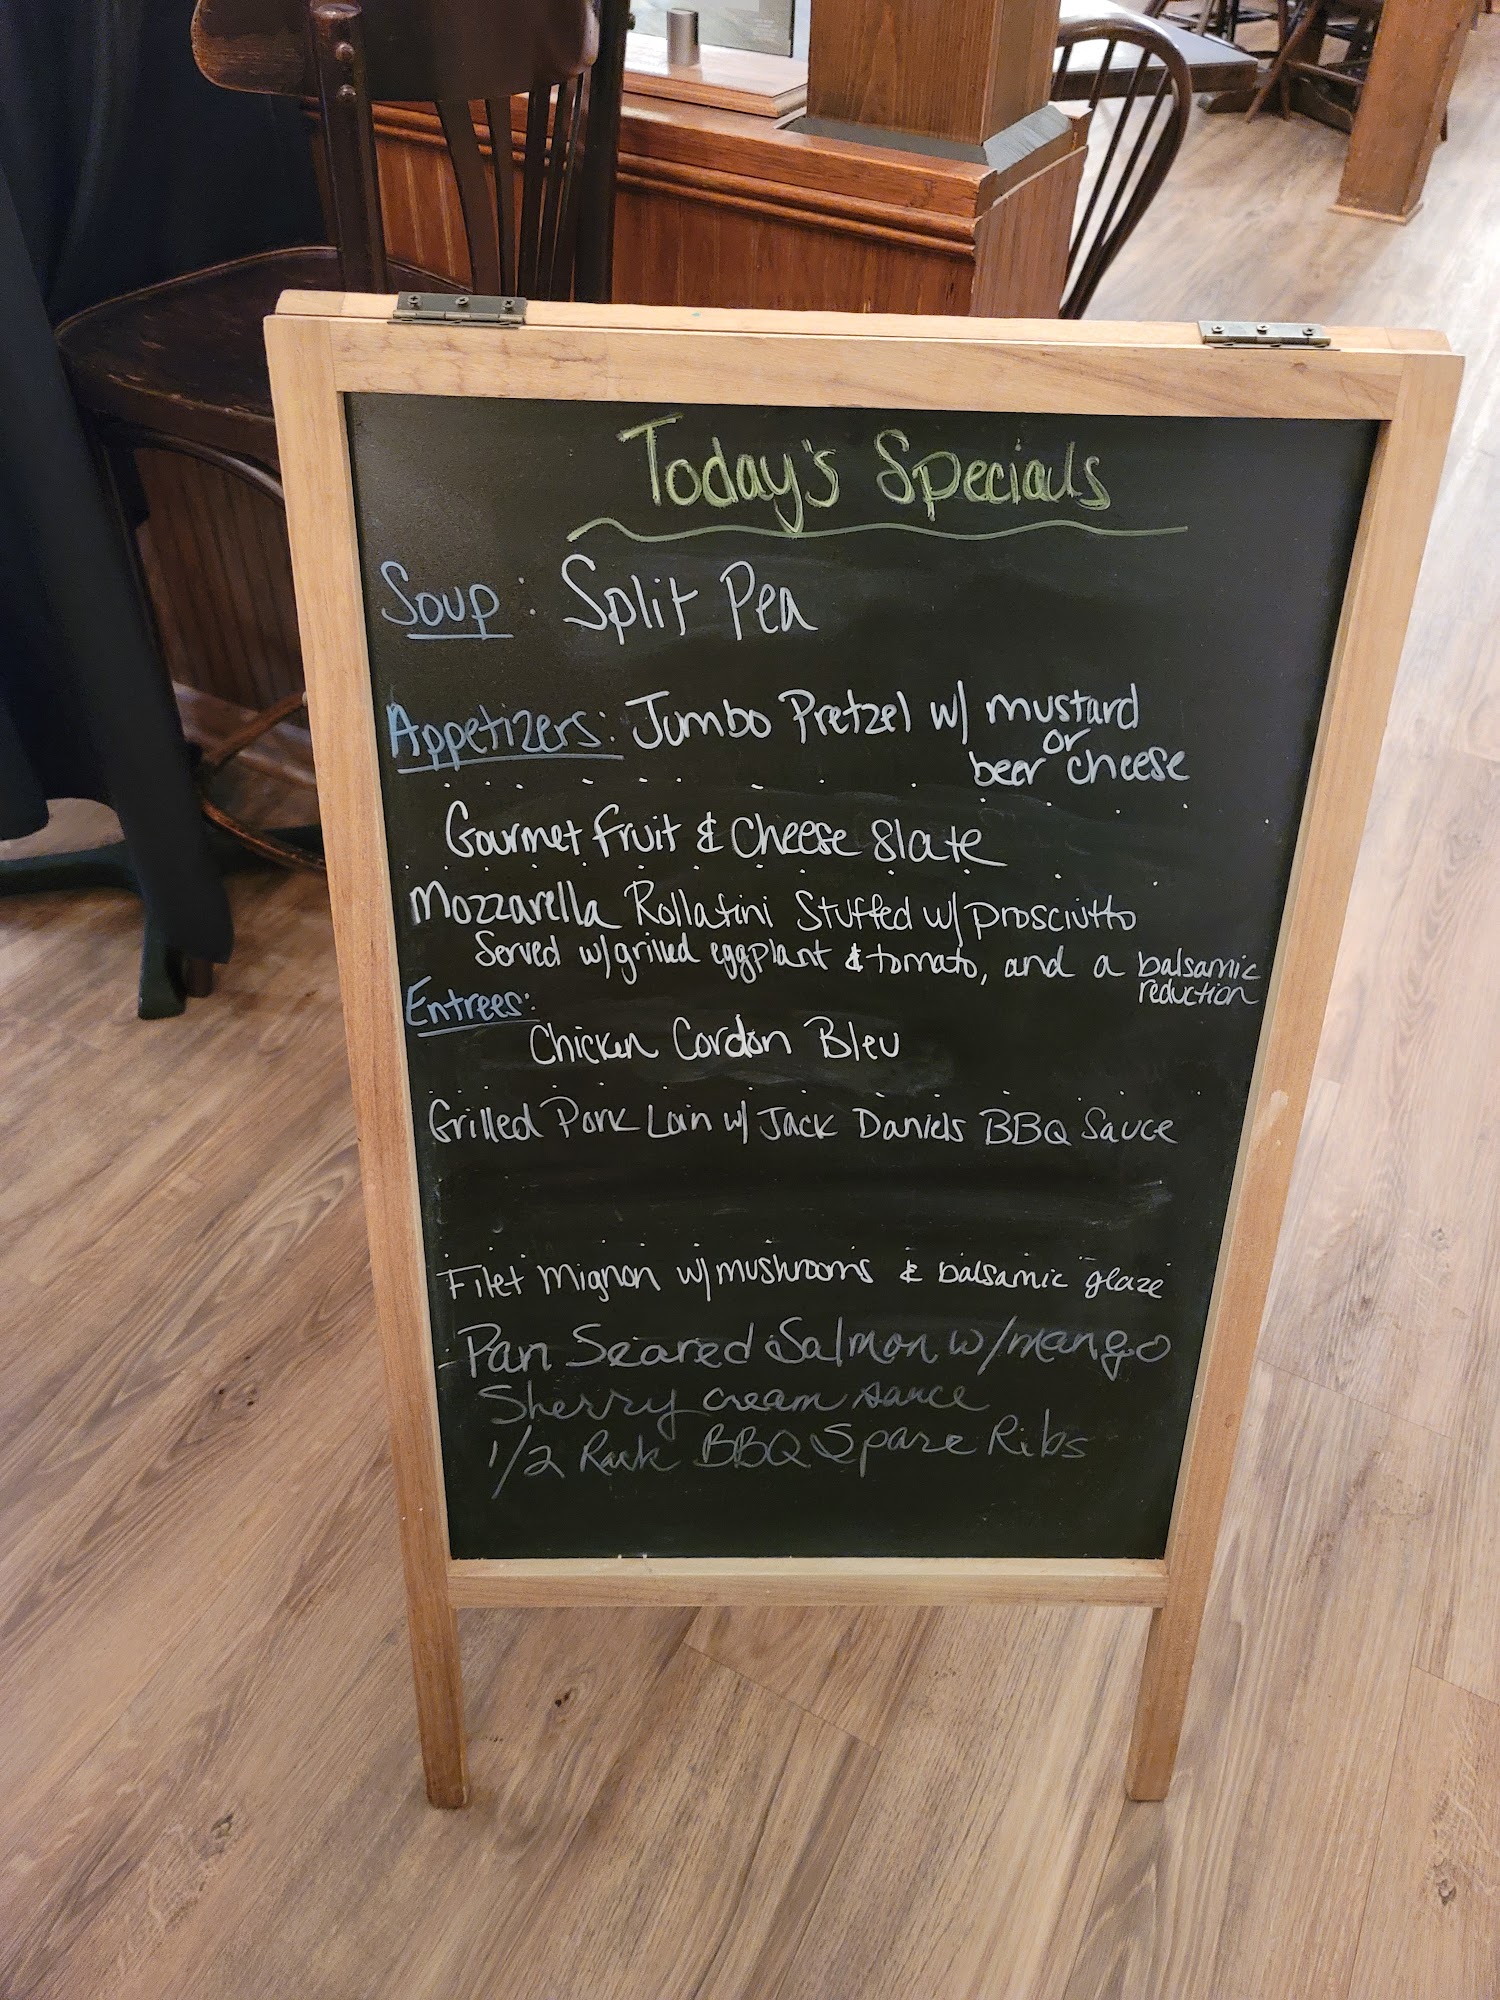 Today's Specials
Soup: Split Pea
Appetizers: Jumbo Pretzel w/ mustard
or
beer cheese
Gourmet Fruit & Cheese Slate
Mozzarella Rollatini Stuffed w/ prosciutto
Served w/ grilled eggplant & tomato, and a balsamic
reduction
Entrees:
Chicken Cordon Bleu
Grilled Pork Loin w/ Jack Daniels BBQ Sauce
Filet Mignon w/ mushrooms & balsamic glaze
Pan Seared Salmon w/ mango
Sherry cream sauce
1/2 Rack BBQ Spare Ribs